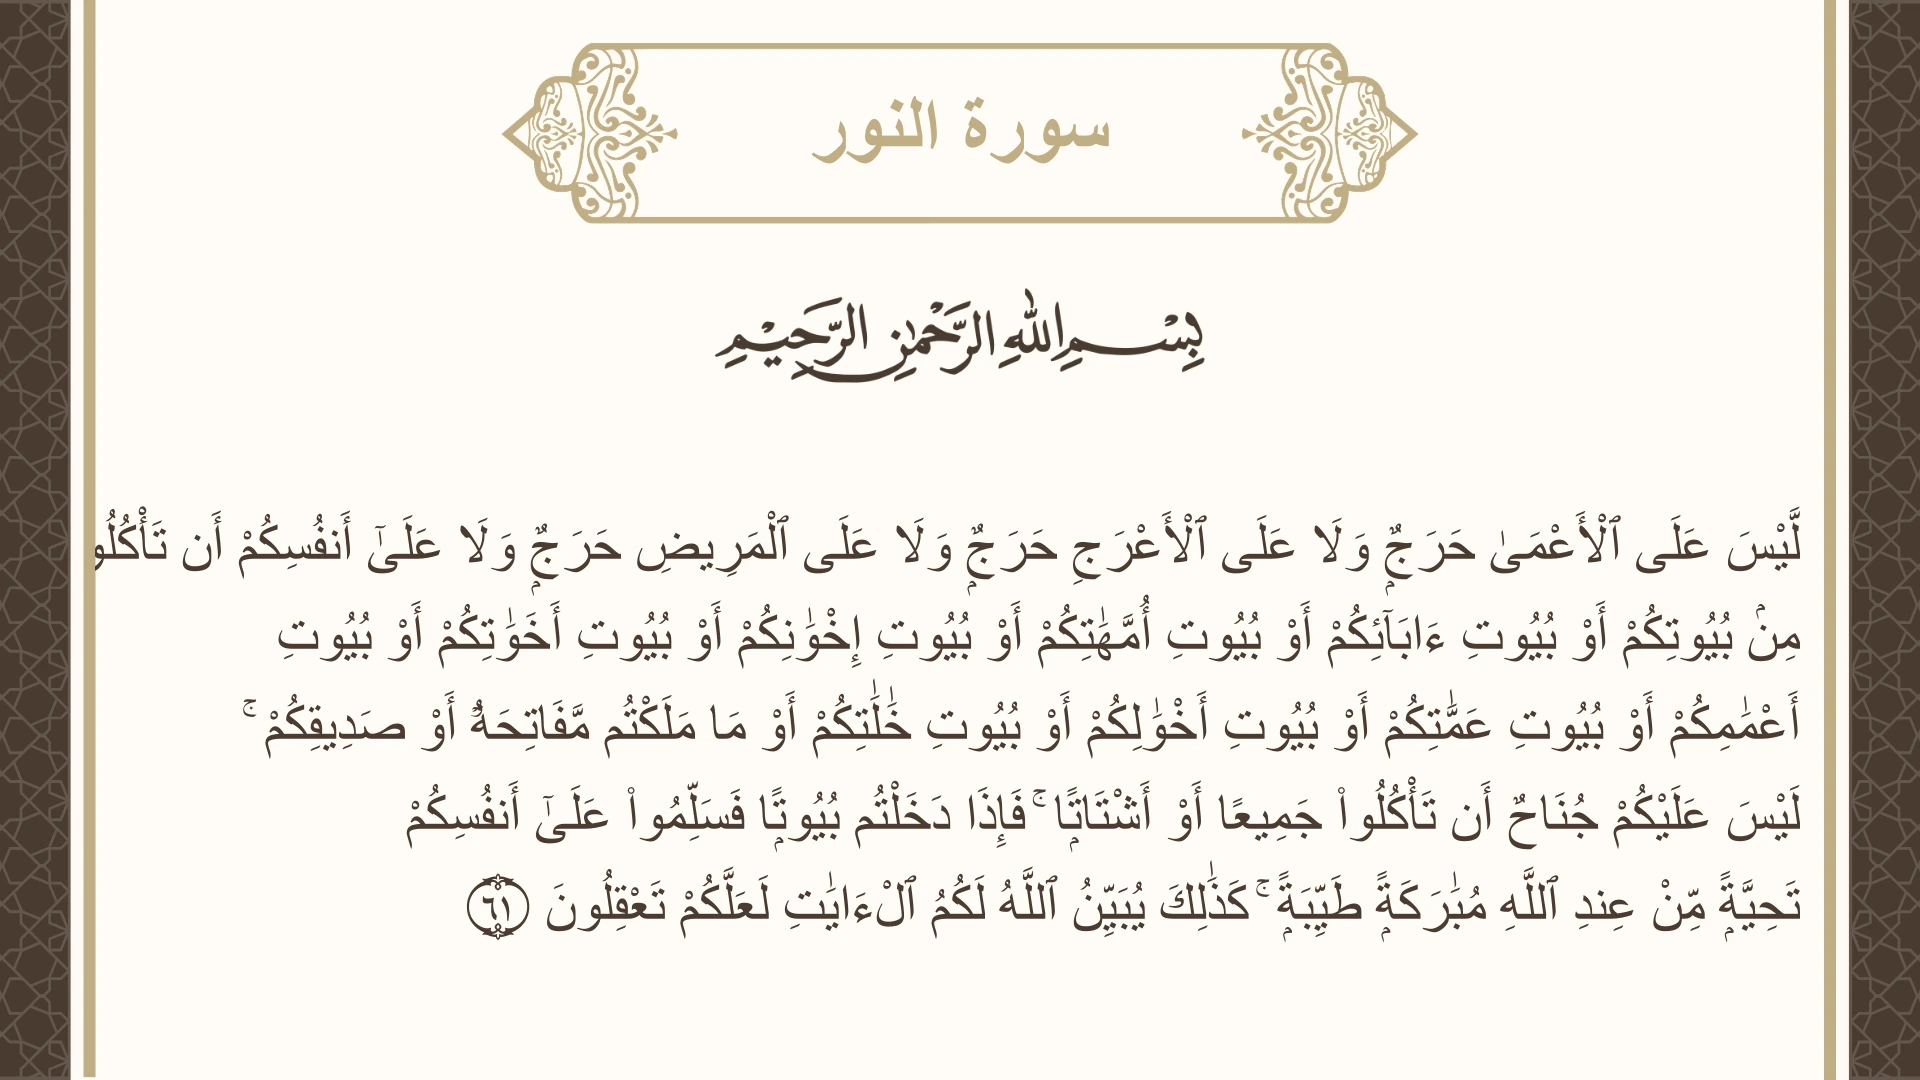 سورة النور
بِسْمِ اللهِ الرَّحْمٰنِ الرَّحِيْمِ
لَّيْسَ عَلَى ٱلْأَعْمَىٰ حَرَجٌۭ وَلَا عَلَى ٱلْأَعْرَجِ حَرَجٌۭ وَلَا عَلَى ٱلْمَرِيضِ حَرَجٌۭ وَلَا عَلَىٰٓ أَنفُسِكُمْ أَن تَأْكُلُو
مِنۢ بُيُوتِكُمْ أَوْ بُيُوتِ ءَابَآئِكُمْ أَوْ بُيُوتِ أُمَّهَٰتِكُمْ أَوْ بُيُوتِ إِخْوَٰنِكُمْ أَوْ بُيُوتِ أَخَوَٰتِكُمْ أَوْ بُيُوتِ
أَعْمَٰمِكُمْ أَوْ بُيُوتِ عَمَّٰتِكُمْ أَوْ بُيُوتِ أَخْوَٰلِكُمْ أَوْ بُيُوتِ خَٰلَٰتِكُمْ أَوْ مَا مَلَكْتُم مَّفَاتِحَهُۥٓ أَوْ صَدِيقِكُمْ ۚ
لَيْسَ عَلَيْكُمْ جُنَاحٌ أَن تَأْكُلُوا۟ جَمِيعًا أَوْ أَشْتَاتًۭا ۚ فَإِذَا دَخَلْتُم بُيُوتًۭا فَسَلِّمُوا۟ عَلَىٰٓ أَنفُسِكُمْ
تَحِيَّةًۭ مِّنْ عِندِ ٱللَّهِ مُبَٰرَكَةًۭ طَيِّبَةًۭ ۚ كَذَٰلِكَ يُبَيِّنُ ٱللَّهُ لَكُمُ ٱلْءَايَٰتِ لَعَلَّكُمْ تَعْقِلُونَ ٦١